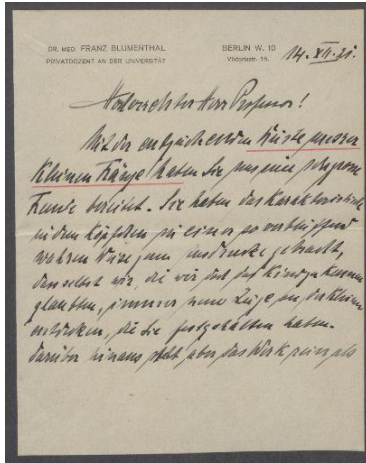 DR. MED. FRANZ BLUMENTHAL
PRIVATDOZENT AN DER UNIVERSITÄT
BERLIN W. 10
Viktoriastr. 15.
14. XII. 21.
Hochverehrter Herr Professor!
Mit der entzückenden Büste unserer
kleinen Ränge haben Sie uns eine sehr grosse
Freude bereitet. Sie haben das Karakteristische
in dem Köpfchen zu einer so verblüffend
wahren Weise zum Ausdrucke gebracht,
dass selbst wir, die wir das Kindchen kennen
glaubten, immer neue Züge an der Kleinen
entdecken, die Sie festgehalten haben.
Darüber hinaus steht aber das Werk rein als